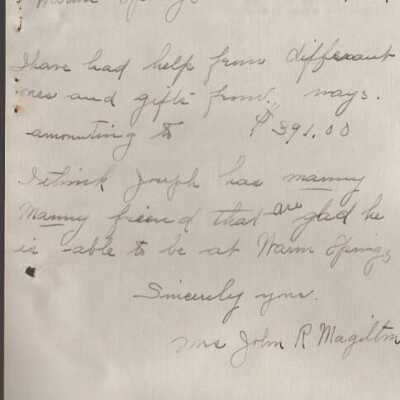 Warm Springs
I have had help from different
ones and gifts from ways.
amonuting to $391.00
I think Joseph has manny
Manny freind that are glad he
is able to be at Warm Springs
Sincerely your.
Mrs John R Magilton